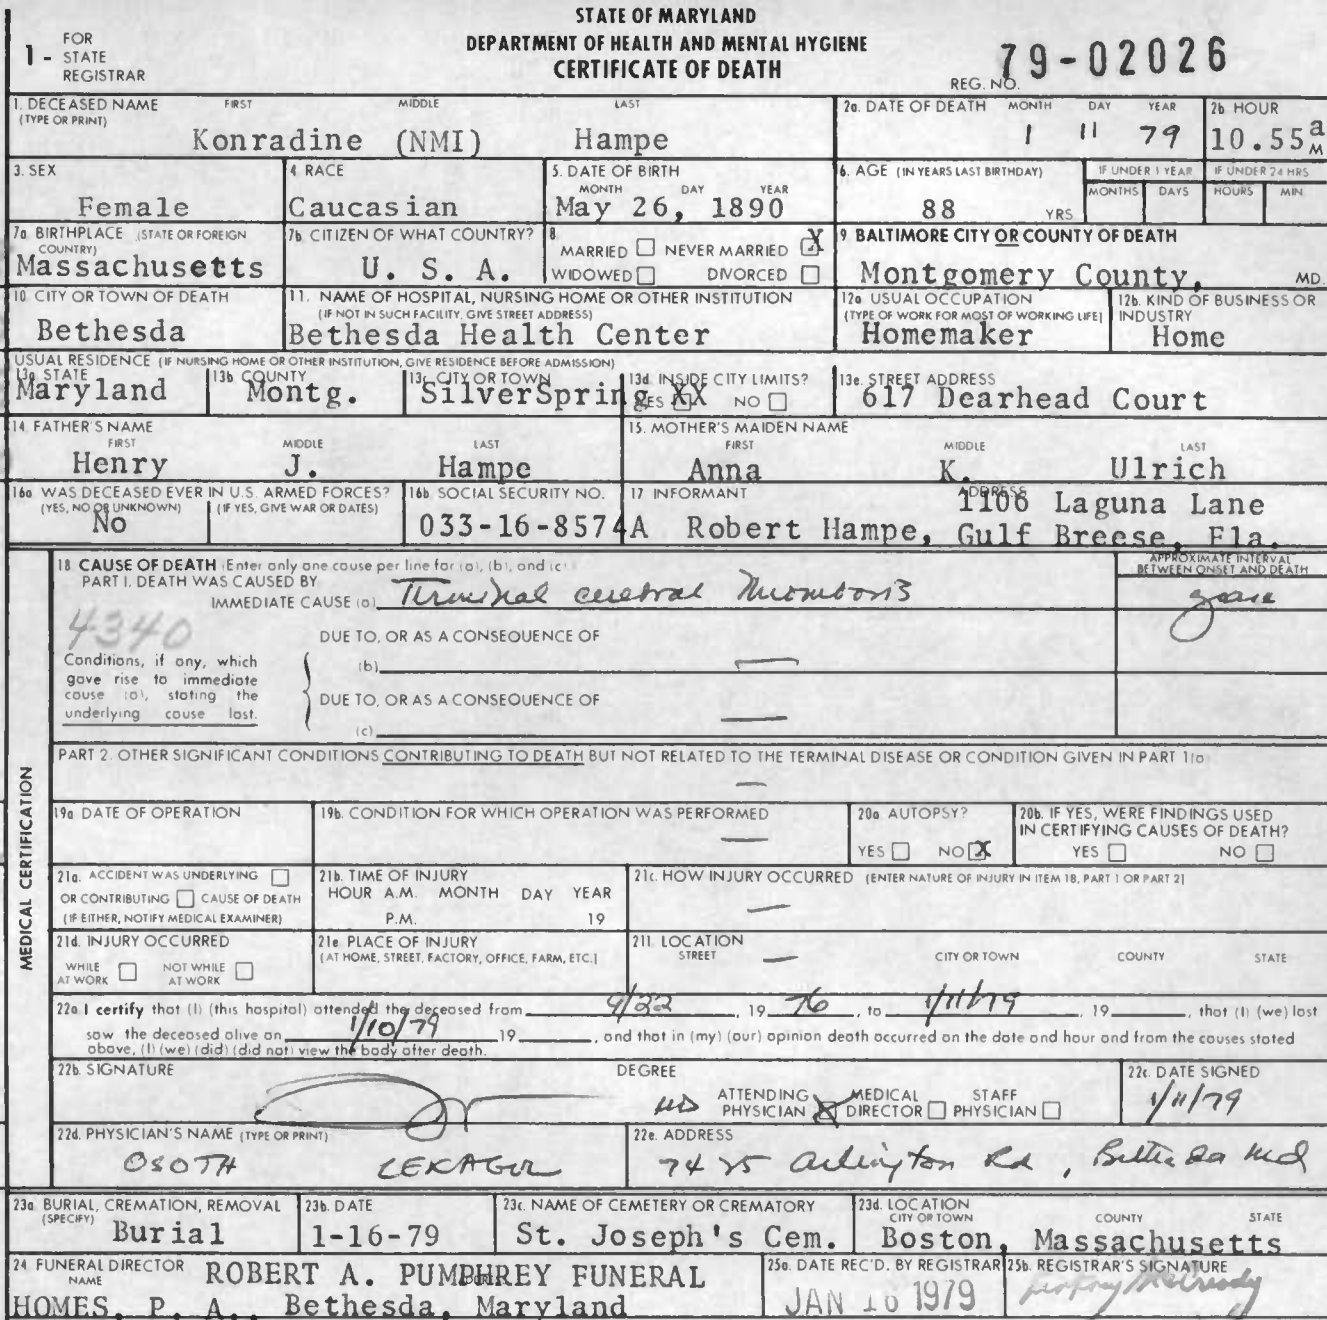 STATE OF MARYLAND
DEPARTMENT OF HEALTH AND MENTAL HYGIENE
CERTIFICATE OF DEATH
1 - FOR STATE REGISTRAR
REG. NO. 79-02026
1. DECEASED NAME (TYPE OR PRINT) FIRST MIDDLE LAST
Konradine (NMI) Hampe
2a. DATE OF DEATH MONTH DAY YEAR
1 11 79
2b HOUR
10.55 a M
3. SEX
Female
4 RACE
Caucasian
5. DATE OF BIRTH MONTH DAY YEAR
May 26, 1890
6. AGE (IN YEARS LAST BIRTHDAY)
88 YRS
IF UNDER 1 YEAR MONTHS DAYS
IF UNDER 24 HRS HOURS MIN
7a BIRTHPLACE (STATE OR FOREIGN COUNTRY)
Massachusetts
7b CITIZEN OF WHAT COUNTRY?
U. S. A.
8 MARRIED NEVER MARRIED X
WIDOWED DIVORCED
9 BALTIMORE CITY OR COUNTY OF DEATH
Montgomery County, MD.
10 CITY OR TOWN OF DEATH
Bethesda
11. NAME OF HOSPITAL, NURSING HOME OR OTHER INSTITUTION
(IF NOT IN SUCH FACILITY, GIVE STREET ADDRESS)
Bethesda Health Center
12a USUAL OCCUPATION
(TYPE OF WORK FOR MOST OF WORKING LIFE)
Homemaker
12b. KIND OF BUSINESS OR INDUSTRY
Home
USUAL RESIDENCE (IF NURSING HOME OR OTHER INSTITUTION, GIVE RESIDENCE BEFORE ADMISSION)
13a STATE
Maryland
13b COUNTY
Montg.
13c CITY OR TOWN
SilverSpring
13d. INSIDE CITY LIMITS?
YES XX NO
13e. STREET ADDRESS
617 Dearhead Court
14. FATHER'S NAME FIRST MIDDLE LAST
Henry J. Hampe
15. MOTHER'S MAIDEN NAME FIRST MIDDLE LAST
Anna K. Ulrich
16a WAS DECEASED EVER IN U.S. ARMED FORCES?
(YES, NO OR UNKNOWN) (IF YES, GIVE WAR OR DATES)
No
16b SOCIAL SECURITY NO.
033-16-8574A
17 INFORMANT ADDRESS
1106 Laguna Lane
Robert Hampe, Gulf Breese, Fla.
MEDICAL CERTIFICATION
18 CAUSE OF DEATH (Enter only one cause per line for (a), (b), and (c)
APPROXIMATE INTERVAL BETWEEN ONSET AND DEATH
PART I. DEATH WAS CAUSED BY
IMMEDIATE CAUSE (a) Terminal cerebral thrombosis
4340
DUE TO, OR AS A CONSEQUENCE OF
Conditions, if any, which gave rise to immediate cause (a), stating the underlying cause last.
(b) —
DUE TO, OR AS A CONSEQUENCE OF
(c) —
PART 2. OTHER SIGNIFICANT CONDITIONS CONTRIBUTING TO DEATH BUT NOT RELATED TO THE TERMINAL DISEASE OR CONDITION GIVEN IN PART 1(a)
—
19a DATE OF OPERATION
19b. CONDITION FOR WHICH OPERATION WAS PERFORMED
—
20a AUTOPSY?
YES NO X
20b. IF YES, WERE FINDINGS USED IN CERTIFYING CAUSES OF DEATH?
YES NO
21a. ACCIDENT WAS UNDERLYING
OR CONTRIBUTING CAUSE OF DEATH
(IF EITHER, NOTIFY MEDICAL EXAMINER)
21b. TIME OF INJURY
HOUR A.M. MONTH DAY YEAR
P.M. 19
21c. HOW INJURY OCCURRED (ENTER NATURE OF INJURY IN ITEM 18, PART 1 OR PART 2)
—
21d. INJURY OCCURRED
WHILE AT WORK NOT WHILE AT WORK
21e PLACE OF INJURY
(AT HOME, STREET, FACTORY, OFFICE, FARM, ETC.)
21f. LOCATION
STREET CITY OR TOWN COUNTY STATE
—
22a I certify that (I) (this hospital) attended the deceased from 9/22, 19 76, to 1/11/79, 19, that (I) (we) last
saw the deceased alive on 1/10/79 19, and that in (my) (our) opinion death occurred on the date and hour and from the causes stated
above, (I) (we) (did) (did not) view the body after death.
22b. SIGNATURE
DEGREE
MD
ATTENDING PHYSICIAN X MEDICAL DIRECTOR STAFF PHYSICIAN
22c. DATE SIGNED
1/11/79
22d. PHYSICIAN'S NAME (TYPE OR PRINT)
OSOTH LEKAGUL
22e. ADDRESS
7425 Arlington Rd, Bethesda Md
23a BURIAL, CREMATION, REMOVAL (SPECIFY)
Burial
23b. DATE
1-16-79
23c. NAME OF CEMETERY OR CREMATORY
St. Joseph's Cem.
23d. LOCATION CITY OR TOWN COUNTY STATE
Boston, Massachusetts
24 FUNERAL DIRECTOR NAME
ROBERT A. PUMPHREY FUNERAL
HOMES, P. A., Bethesda, Maryland
25a. DATE REC'D. BY REGISTRAR
JAN 16 1979
25b. REGISTRAR'S SIGNATURE